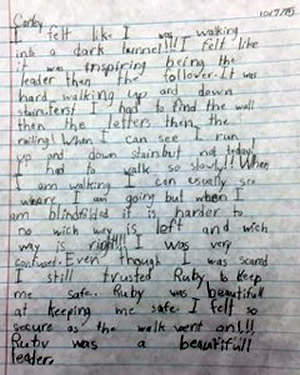 Corley 10/7/95
I felt like I was walking
into a dark tunnel!!! I felt like
it was inspiring being the
leader then the follower. It was
hard walking up and down
stairs first I had to find the wall
then the letters then the
railing! When I can see I run
up and down stairs but not today!
I had to walk so slowly!! When
I am walking I can usually see
where I am going but when I
am blindfolded it is harder to
no wich way is left and wich
way is right!!! I was very
confused. Even though I was scared
I still trusted Ruby to keep
me safe. Ruby was beautifull
at keeping me safe. I felt so
secure as the walk went on!!!
Ruby was a beautifull
leader.